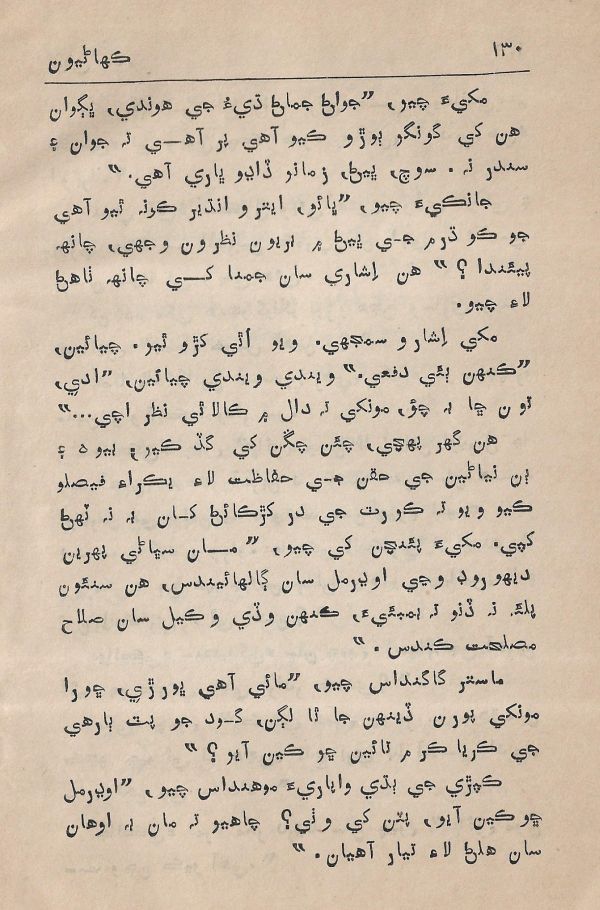 ۱۳۰
ڪهاڻيون
مکيءَ چيو، ”جوان جمان ڌيءُ جي هوندي، ڀڳوان
هن کي گونگو ٻوڙو ڪيو آهي پر آهي ته جوان ۽
سندر نه. سوچ، ڀيڻ، زمانو ڏاڍو ڀاري آهي.“
جانڪيءَ چيو، ”ڀائو، ايترو انڌير ڪونه ٿيو آهي
جو ڪو ڌرم جي ڀيڻ ۾ بريون نظرون وجهي، چانهه
پيئندا؟“ هن اِشاري سان جمنا کي چانهه ٺاهڻ
لاءِ چيو.
مکي اِشارو سمجهي. ويو اُٿي کڙو ٿيو. چيائين،
”ڪنهن ٻئي دفعي.“ ويندي ويندي چيائين، ”ادي،
تون ڇا به چؤ، مونکي ته دال ۾ ڪالائي نظر اچي...“
هن گهر پهچي، چئن چڱن کي گڏ ڪيو؛ بيوه ۽
ٻن نياڻين جي حقن جي حفاظت لاءِ يڪراءِ فيصلو
ڪيو ويو ته ڪورٽ جي در کڙڪائڻ کان به نه ٽهڻ
کپي. مکيءَ پئنچن کي چيو، ”مان سڀاڻي پهرين
ديهورود وڃي اوڌرمل سان ڳالهائيندس، هن سنئون
پلئه نه ڏنو ته بمبئيءَ، ڪنهن وڏي وڪيل سان صلاح
مصلحت ڪندس.“
ماستر گاگنداس چيو، ”مائي آهي ڀورڙي، ڇورا
مونکي پورن ڏينهن جا ٿا لڳن، گود جو پٽ ٻارهي
جي ڪريا ڪرم تائين ڇو ڪين آيو؟“
ڪپڙي جي ٻڌي واپاريءَ موهنداس چيو، ”اوڌرمل
ڇو ڪين آيو، پڇن کي وڻي؟ چاهيو ته مان به اوهان
سان هلڻ لاءِ تيار آهيان.“